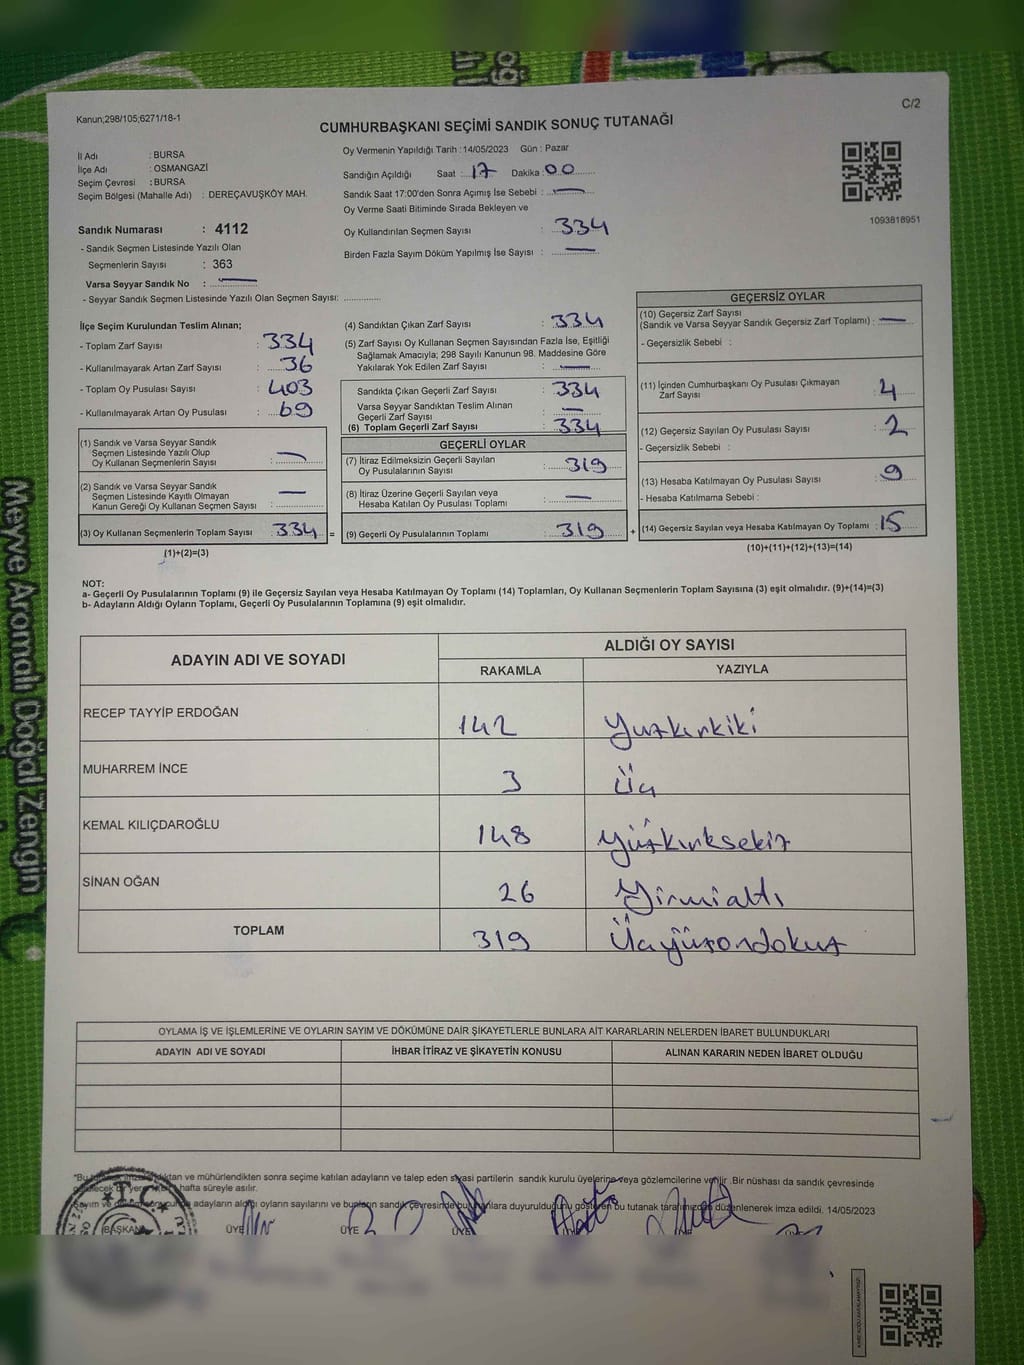 C/2
Kanun;298/105;6271/18-1
CUMHURBAŞKANI SEÇİMİ SANDIK SONUÇ TUTANAĞI
İl Adı : BURSA
İlçe Adı : OSMANGAZİ
Seçim Çevresi : BURSA
Seçim Bölgesi (Mahalle Adı) : DEREÇAVUŞKÖY MAH.
Sandık Numarası : 4112
- Sandık Seçmen Listesinde Yazılı Olan
Seçmenlerin Sayısı : 363
Varsa Seyyar Sandık No : —
- Seyyar Sandık Seçmen Listesinde Yazılı Olan Seçmen Sayısı: ............
Oy Vermenin Yapıldığı Tarih : 14/05/2023 Gün : Pazar
Sandığın Açıldığı Saat : 17 Dakika : 00
Sandık Saat 17:00'den Sonra Açımış İse Sebebi : —
Oy Verme Saati Bitiminde Sırada Bekleyen ve
Oy Kullandırılan Seçmen Sayısı : 334
Birden Fazla Sayım Döküm Yapılmış İse Sayısı : —
1093818951
İlçe Seçim Kurulundan Teslim Alınan;
- Toplam Zarf Sayısı : 334
- Kullanılmayarak Artan Zarf Sayısı : 36
- Toplam Oy Pusulası Sayısı : 403
- Kullanılmayarak Artan Oy Pusulası : 69
(1) Sandık ve Varsa Seyyar Sandık
Seçmen Listesinde Yazılı Olup
Oy Kullanan Seçmenlerin Sayısı : —
(2) Sandık ve Varsa Seyyar Sandık
Seçmen Listesinde Kayıtlı Olmayan
Kanun Gereği Oy Kullanan Seçmen Sayısı : —
(3) Oy Kullanan Seçmenlerin Toplam Sayısı : 334 =
(1)+(2)=(3)
(4) Sandıktan Çıkan Zarf Sayısı : 334
(5) Zarf Sayısı Oy Kullanan Seçmen Sayısından Fazla İse, Eşitliği
Sağlamak Amacıyla; 298 Sayılı Kanunun 98. Maddesine Göre
Yakılarak Yok Edilen Zarf Sayısı : —
Sandıkta Çıkan Geçerli Zarf Sayısı : 334
Varsa Seyyar Sandıktan Teslim Alınan
Geçerli Zarf Sayısı : —
(6) Toplam Geçerli Zarf Sayısı : 334
GEÇERLİ OYLAR
(7) İtiraz Edilmeksizin Geçerli Sayılan
Oy Pusulalarının Sayısı : 319
(8) İtiraz Üzerine Geçerli Sayılan veya
Hesaba Katılan Oy Pusulası Toplamı : —
(9) Geçerli Oy Pusulalarının Toplamı : 319 +
GEÇERSİZ OYLAR
(10) Geçersiz Zarf Sayısı
(Sandık ve Varsa Seyyar Sandık Geçersiz Zarf Toplamı) : —
- Geçersizlik Sebebi :
(11) İçinden Cumhurbaşkanı Oy Pusulası Çıkmayan
Zarf Sayısı : 4
(12) Geçersiz Sayılan Oy Pusulası Sayısı : 2
- Geçersizlik Sebebi :
(13) Hesaba Katılmayan Oy Pusulası Sayısı : 9
- Hesaba Katılmama Sebebi :
(14) Geçersiz Sayılan veya Hesaba Katılmayan Oy Toplamı : 15
(10)+(11)+(12)+(13)=(14)
NOT:
a- Geçerli Oy Pusulalarının Toplamı (9) ile Geçersiz Sayılan veya Hesaba Katılmayan Oy Toplamı (14) Toplamları, Oy Kullanan Seçmenlerin Toplam Sayısına (3) eşit olmalıdır. (9)+(14)=(3)
b- Adayların Aldığı Oyların Toplamı, Geçerli Oy Pusulalarının Toplamına (9) eşit olmalıdır.
ADAYIN ADI VE SOYADI ALDIĞI OY SAYISI
RAKAMLA YAZIYLA
RECEP TAYYİP ERDOĞAN 142 Yuzkırkiki
MUHARREM İNCE 3 Üç
KEMAL KILIÇDAROĞLU 148 Yüzkırksekiz
SİNAN OĞAN 26 Yirmialtı
TOPLAM 319 Üçyüzondokuz
OYLAMA İŞ VE İŞLEMLERİNE VE OYLARIN SAYIM VE DÖKÜMÜNE DAİR ŞİKAYETLERLE BUNLARA AİT KARARLARIN NELERDEN İBARET BULUNDUKLARI
ADAYIN ADI VE SOYADI İHBAR İTİRAZ VE ŞİKAYETİN KONUSU ALINAN KARARIN NEDEN İBARET OLDUĞU
ve mühürlendikten sonra seçime katılan adayların ve talep eden siyasi partilerin sandık kurulu üyelerine veya gözlemcilerine verilir .Bir nüshası da sandık çevresinde
hafta süreyle asılır.
adayların aldığı oyların sayılarını ve bunların sandık çevresinde duyurulduğunu gösteren bu tutanak tarafımızdan düzenlenerek imza edildi. 14/05/2023
T.C.
BAŞKAN ÜYE ÜYE ÜYE
Meyve Aromalı Doğal Zengin